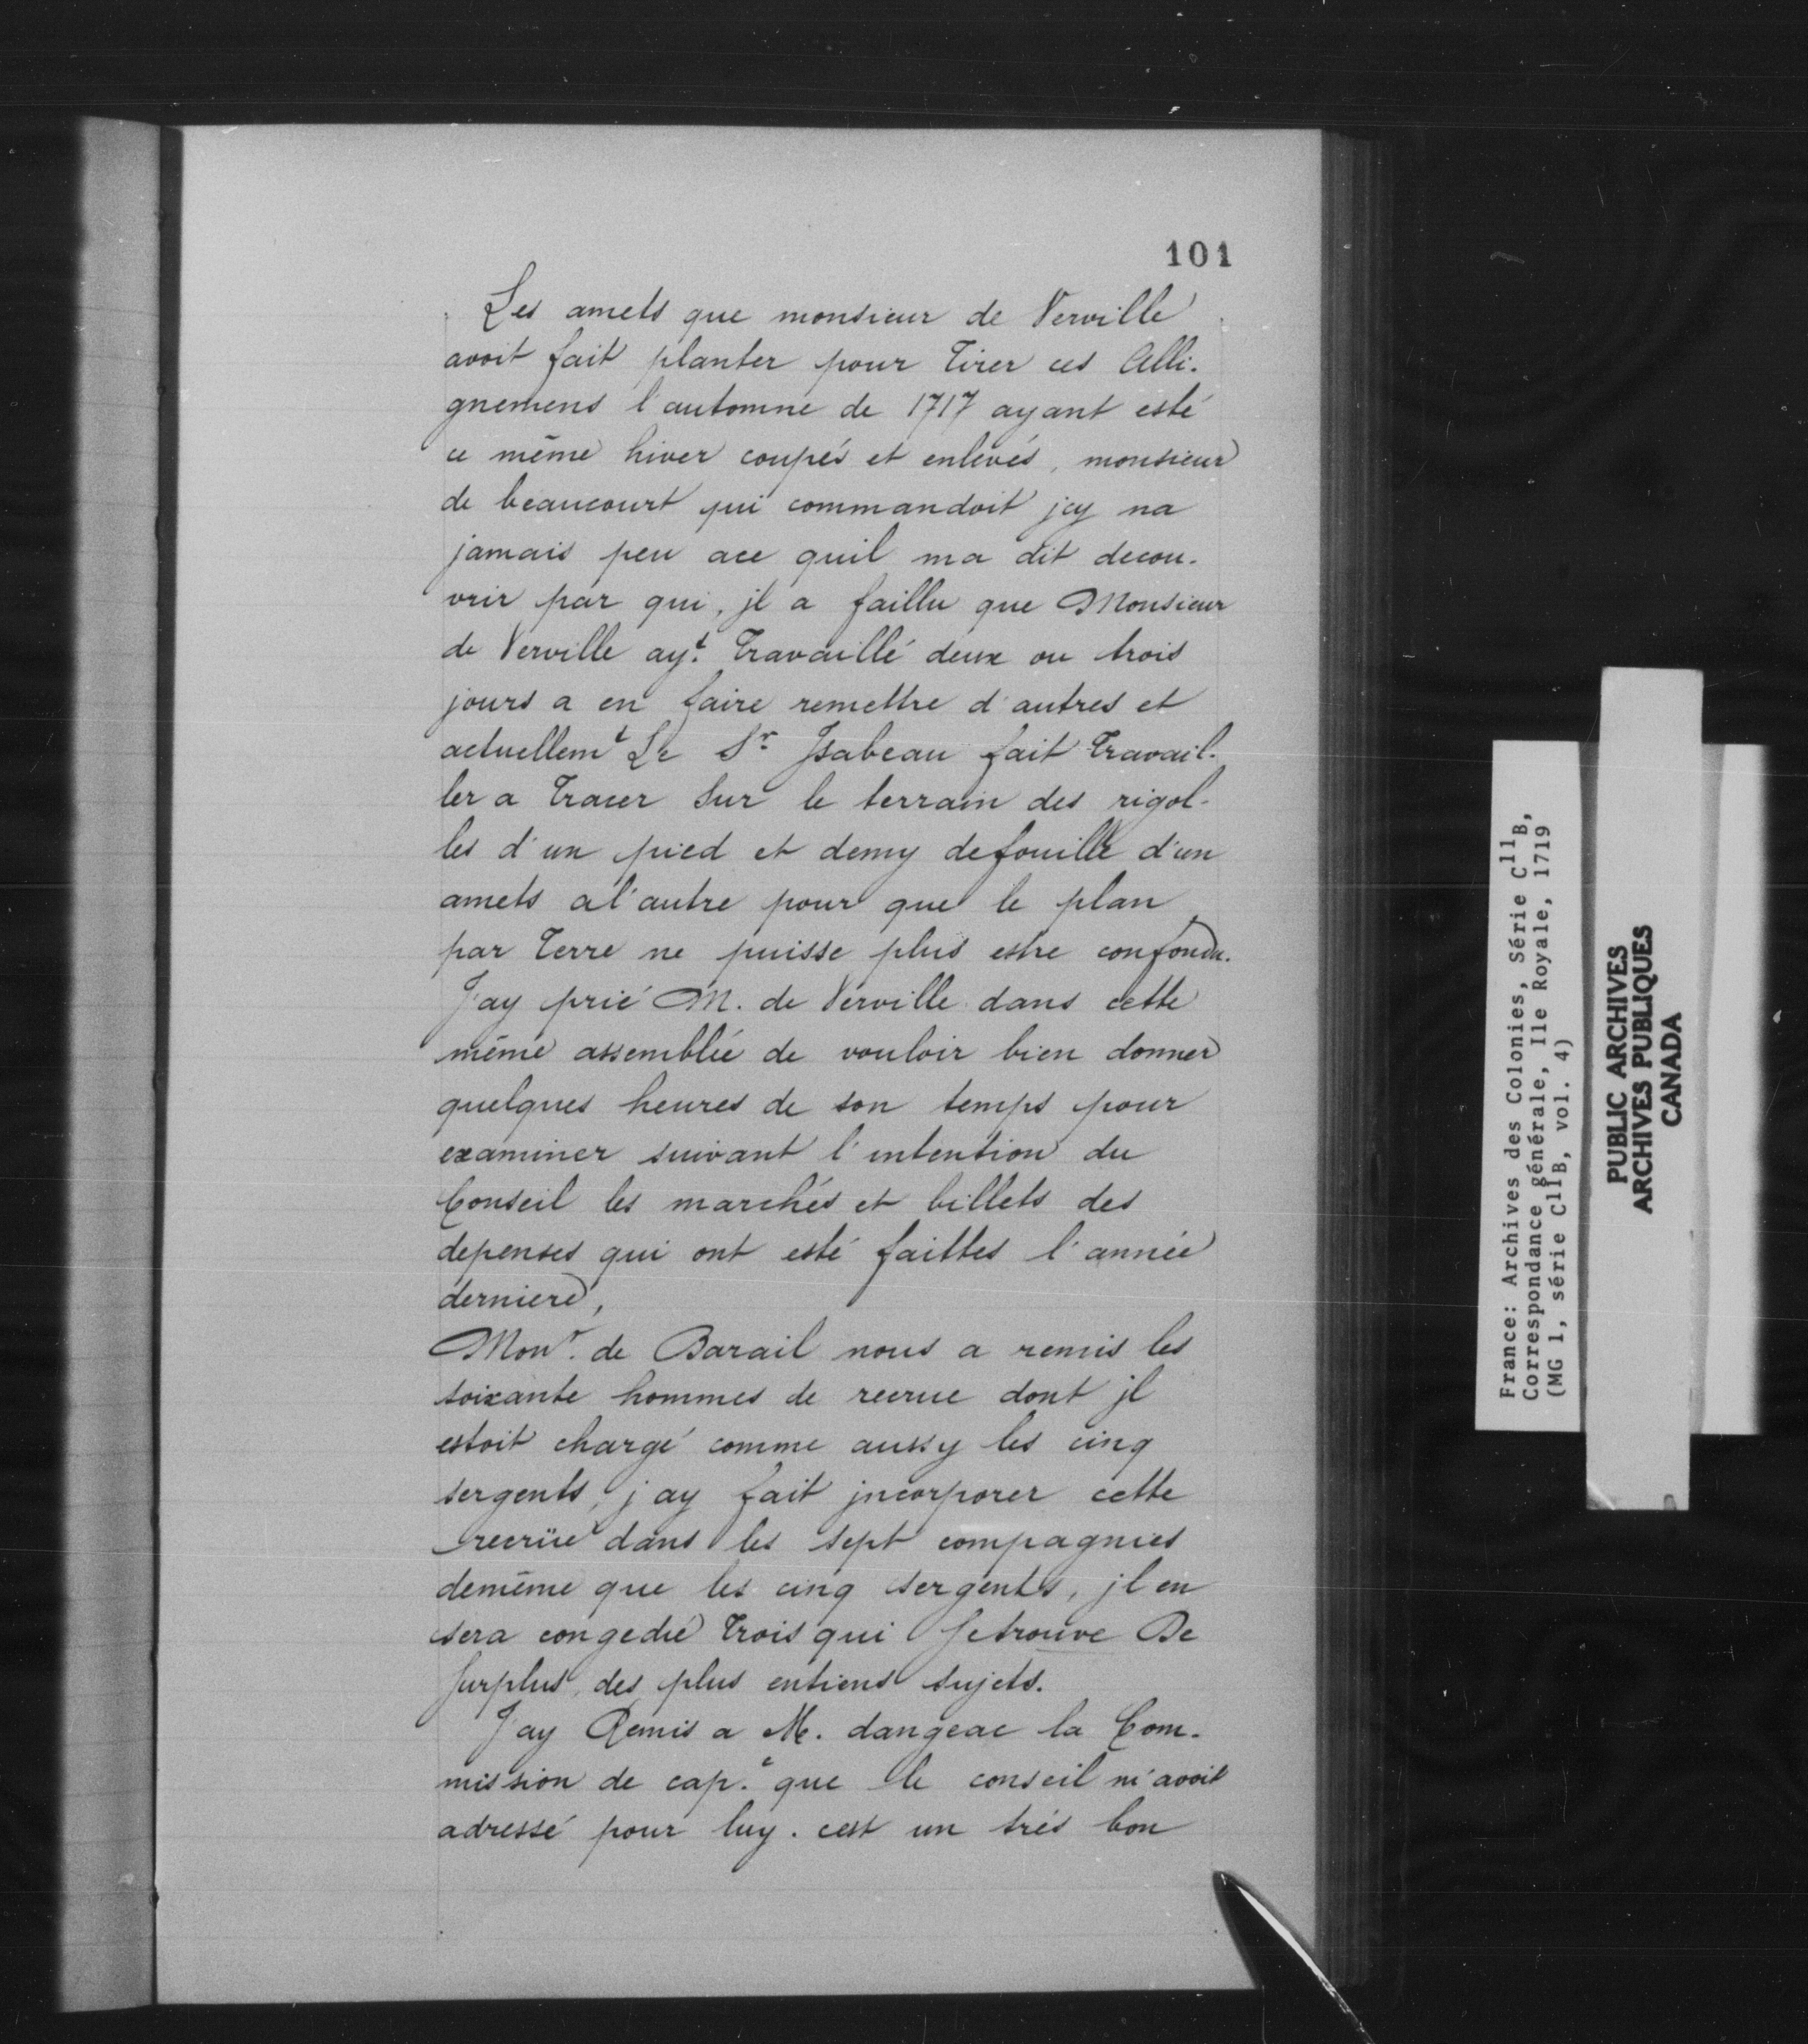 101
Les amets que monsieur de Verville
avoit fait planter pour Tirer ces Alli-
gnemens l'automne de 1717 ayant esté
ce même hiver coupés et enlevés, monsieur
de beaucourt qui commandoit jcy na
jamais peu ace quil ma dit decou-
vrir par qui, jl a faillu que Monsieur
de Verville ayt. Travaillé deux ou trois
jours a en faire remettre d'autres et
actuellemt Le Sr Jsabeau fait Travail-
ler a Tracer Sur le terrain des rigol-
les d'un pied et demy defouille d'un
amets al'autre pour que le plan
par Terre ne puisse plus estre confondu.
J'ay prié M. de Verville dans cette
même assemblée de vouloir bien donner
quelques heures de son temps pour
examiner suivant l'intention du
Conseil les marchés et billets des
depenses qui ont esté faittes l'année
derniere,
Monr. de Barail nous a remis les
soixante hommes de recrue dont jl
estoit chargé comme aussy les cinq
sergents, j'ay fait jncorporer cette
recrüe dans les sept compagnies
demême que les cinq sergents, jl en
sera congedié Trois qui Setrouve De
Surplus, des plus entiens sujets.
J'ay Remis a M. dangeac la Com-
mission de cap.e que le conseil m'avoit
adressé pour luy. cest un trés bon
France: Archives des Colonies, Série C11B,
Correspondance générale, Ile Royale, 1719
(MG 1, série C11B, vol. 4)
PUBLIC ARCHIVES
ARCHIVES PUBLIQUES
CANADA